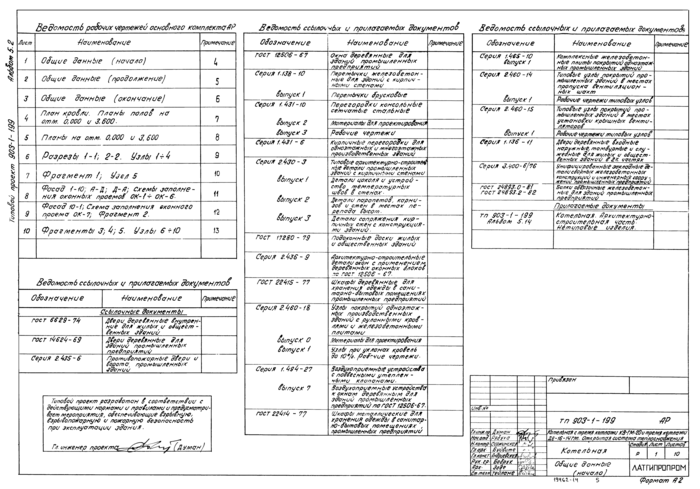 Альбом 5.2
Типовой проект 903-1-199
Ведомость рабочих чертежей основного комплекта АР
Лист Наименование Примечание
1 Общие данные (начало) 4
2 Общие данные (продолжение) 5
3 Общие данные (окончание) 6
4 План кровли. Планы полов на отм. 0,000 и 3,600. 7
5 Планы на отм. 0,000 и 3,600 8
6 Разрезы 1-1; 2-2. Узлы 1÷4 9
7 Фрагмент 1; Узел 5 10
8 Фасад 1-10; А-Д; Д-А; Схемы заполнения оконных проемов ОК-1÷ОК-6. 11
9 Фасад 10-1; Схема заполнения оконного проема ОК-7; Фрагмент 2. 12
10 Фрагменты 3; 4; 5. Узлы 6÷10 13
Ведомость ссылочных и прилагаемых документов
Обозначение Наименование Примечание
Ссылочные документы
ГОСТ 6629-74 Двери деревянные внутренние для жилых и общественных зданий
ГОСТ 14624-69 Двери деревянные для зданий промышленных предприятий
Серия 2.435-6 Противопожарные двери и ворота промышленных зданий
Типовой проект разработан в соответствии с
действующими нормами и правилами и предусматривает
мероприятия, обеспечивающие взрывную,
взрывопожарную и пожарную безопасность
при эксплуатации здания.
Гл. инженер проекта (Духан)
Ведомость ссылочных и прилагаемых документов
Обозначение Наименование Примечание
ГОСТ 12506-67 Окна деревянные для зданий промышленных предприятий
Серия 1.138-10 Перемычки железобетонные для зданий с кирпичными стенами
Выпуск 1 Перемычки брусковые
Серия 1.431-10 Перегородки консольные сетчатые стальные
Выпуск 2 Материалы для проектирования
Выпуск 3 Рабочие чертежи
Серия 1.431-6 Кирпичные перегородки для одноэтажных и многоэтажных производственных зданий
Серия 2.430-3 Типовые архитектурно-строительные детали промышленных зданий с кирпичными стенами
Выпуск 1 Детали цоколя и устройство температурных швов в стенах
Выпуск 2 Детали парапетов, карнизов и стен в местах перепада высот
Выпуск 3 Детали сопряжения кирпичных стен с конструкциями зданий
ГОСТ 17280-79 Подоконные доски жилых и общественных зданий
Серия 2.436-9 Архитектурно-строительные детали окон с применением деревянных оконных блоков по ГОСТ 12506-67.
ГОСТ 22415-77 Шкафы деревянные для хранения одежды в санитарно-бытовых помещениях промышленных предприятий
Серия 2.460-18 Узлы покрытий одноэтажных производственных зданий с рулонными кровлями и железобетонными плитами
Выпуск 0 Материалы для проектирования
Выпуск 1 Узлы при уклонах кровель до 10%. Рабочие чертежи.
Серия 1.494-27 Воздухоприемные устройства с подвесными утепленными клапанами.
Выпуск 7 Воздухоприемные устройства к окнам деревянным для зданий промышленных предприятий по ГОСТ 12506-67.
ГОСТ 22414-77 Шкафы металлические для хранения одежды в санитарно-бытовых помещениях промышленных предприятий
Ведомость ссылочных и прилагаемых документов
Обозначение Наименование Примечание
Серия 1.465-10 Выпуск 1 Комплексные железобетонные плиты покрытий одноэтажных промышленных зданий
Серия 2.460-14 Типовые узлы покрытий промышленных зданий в местах пропуска вентиляционных шахт
Выпуск 1 Рабочие чертежи типовых узлов
Серия 2.460-15 Типовые узлы покрытий промышленных зданий в местах установки крышных вентиляторов
Выпуск 1 Рабочие чертежи типовых узлов
Серия 1.136-11 Двери деревянные входные наружные, тамбурные и служебные для жилых и общественных зданий
Серия 3.400-6/76
ГОСТ 24893.0-81
ГОСТ 24893.2-82 Балки обвязочные железобетонные для зданий промышленных предприятий
Прилагаемые документы
ТП 903-1-199 Альбом 5.14 Котельная. Архитектурно-строительная часть. Нетиповые изделия.
Привязан
Инв.№
ТП 903-1-199 АР
Открытая система теплоснабжения
Котельная
Стадия Лист Листов
Р 1 10
Общие данные (начало)
ЛАТГИПРОПРОМ
19462-14 5 Формат А2